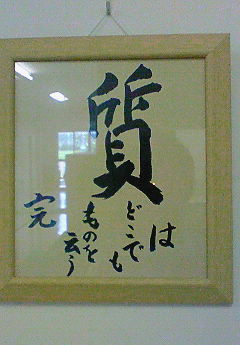 質は
どこでも
ものを
云う
完